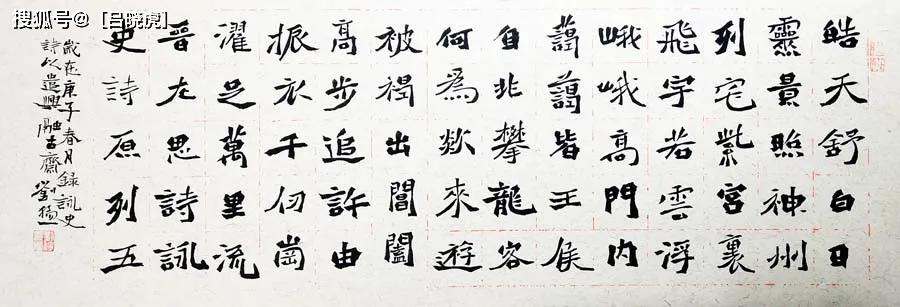 搜狐号@[吕晓虎]
皓天舒白日
靈景照神州
列宅紫宮裏
飛宇若雲浮
峨峨高門内
藹藹皆王侯
自非攀龍客
何為欻來遊
被褐出閶闔
高步追許由
振衣千仞崗
濯足萬里流
晉左思詩詠
史詩原列五
歲在庚子春月錄詠史
詩以遣興融古齋劉